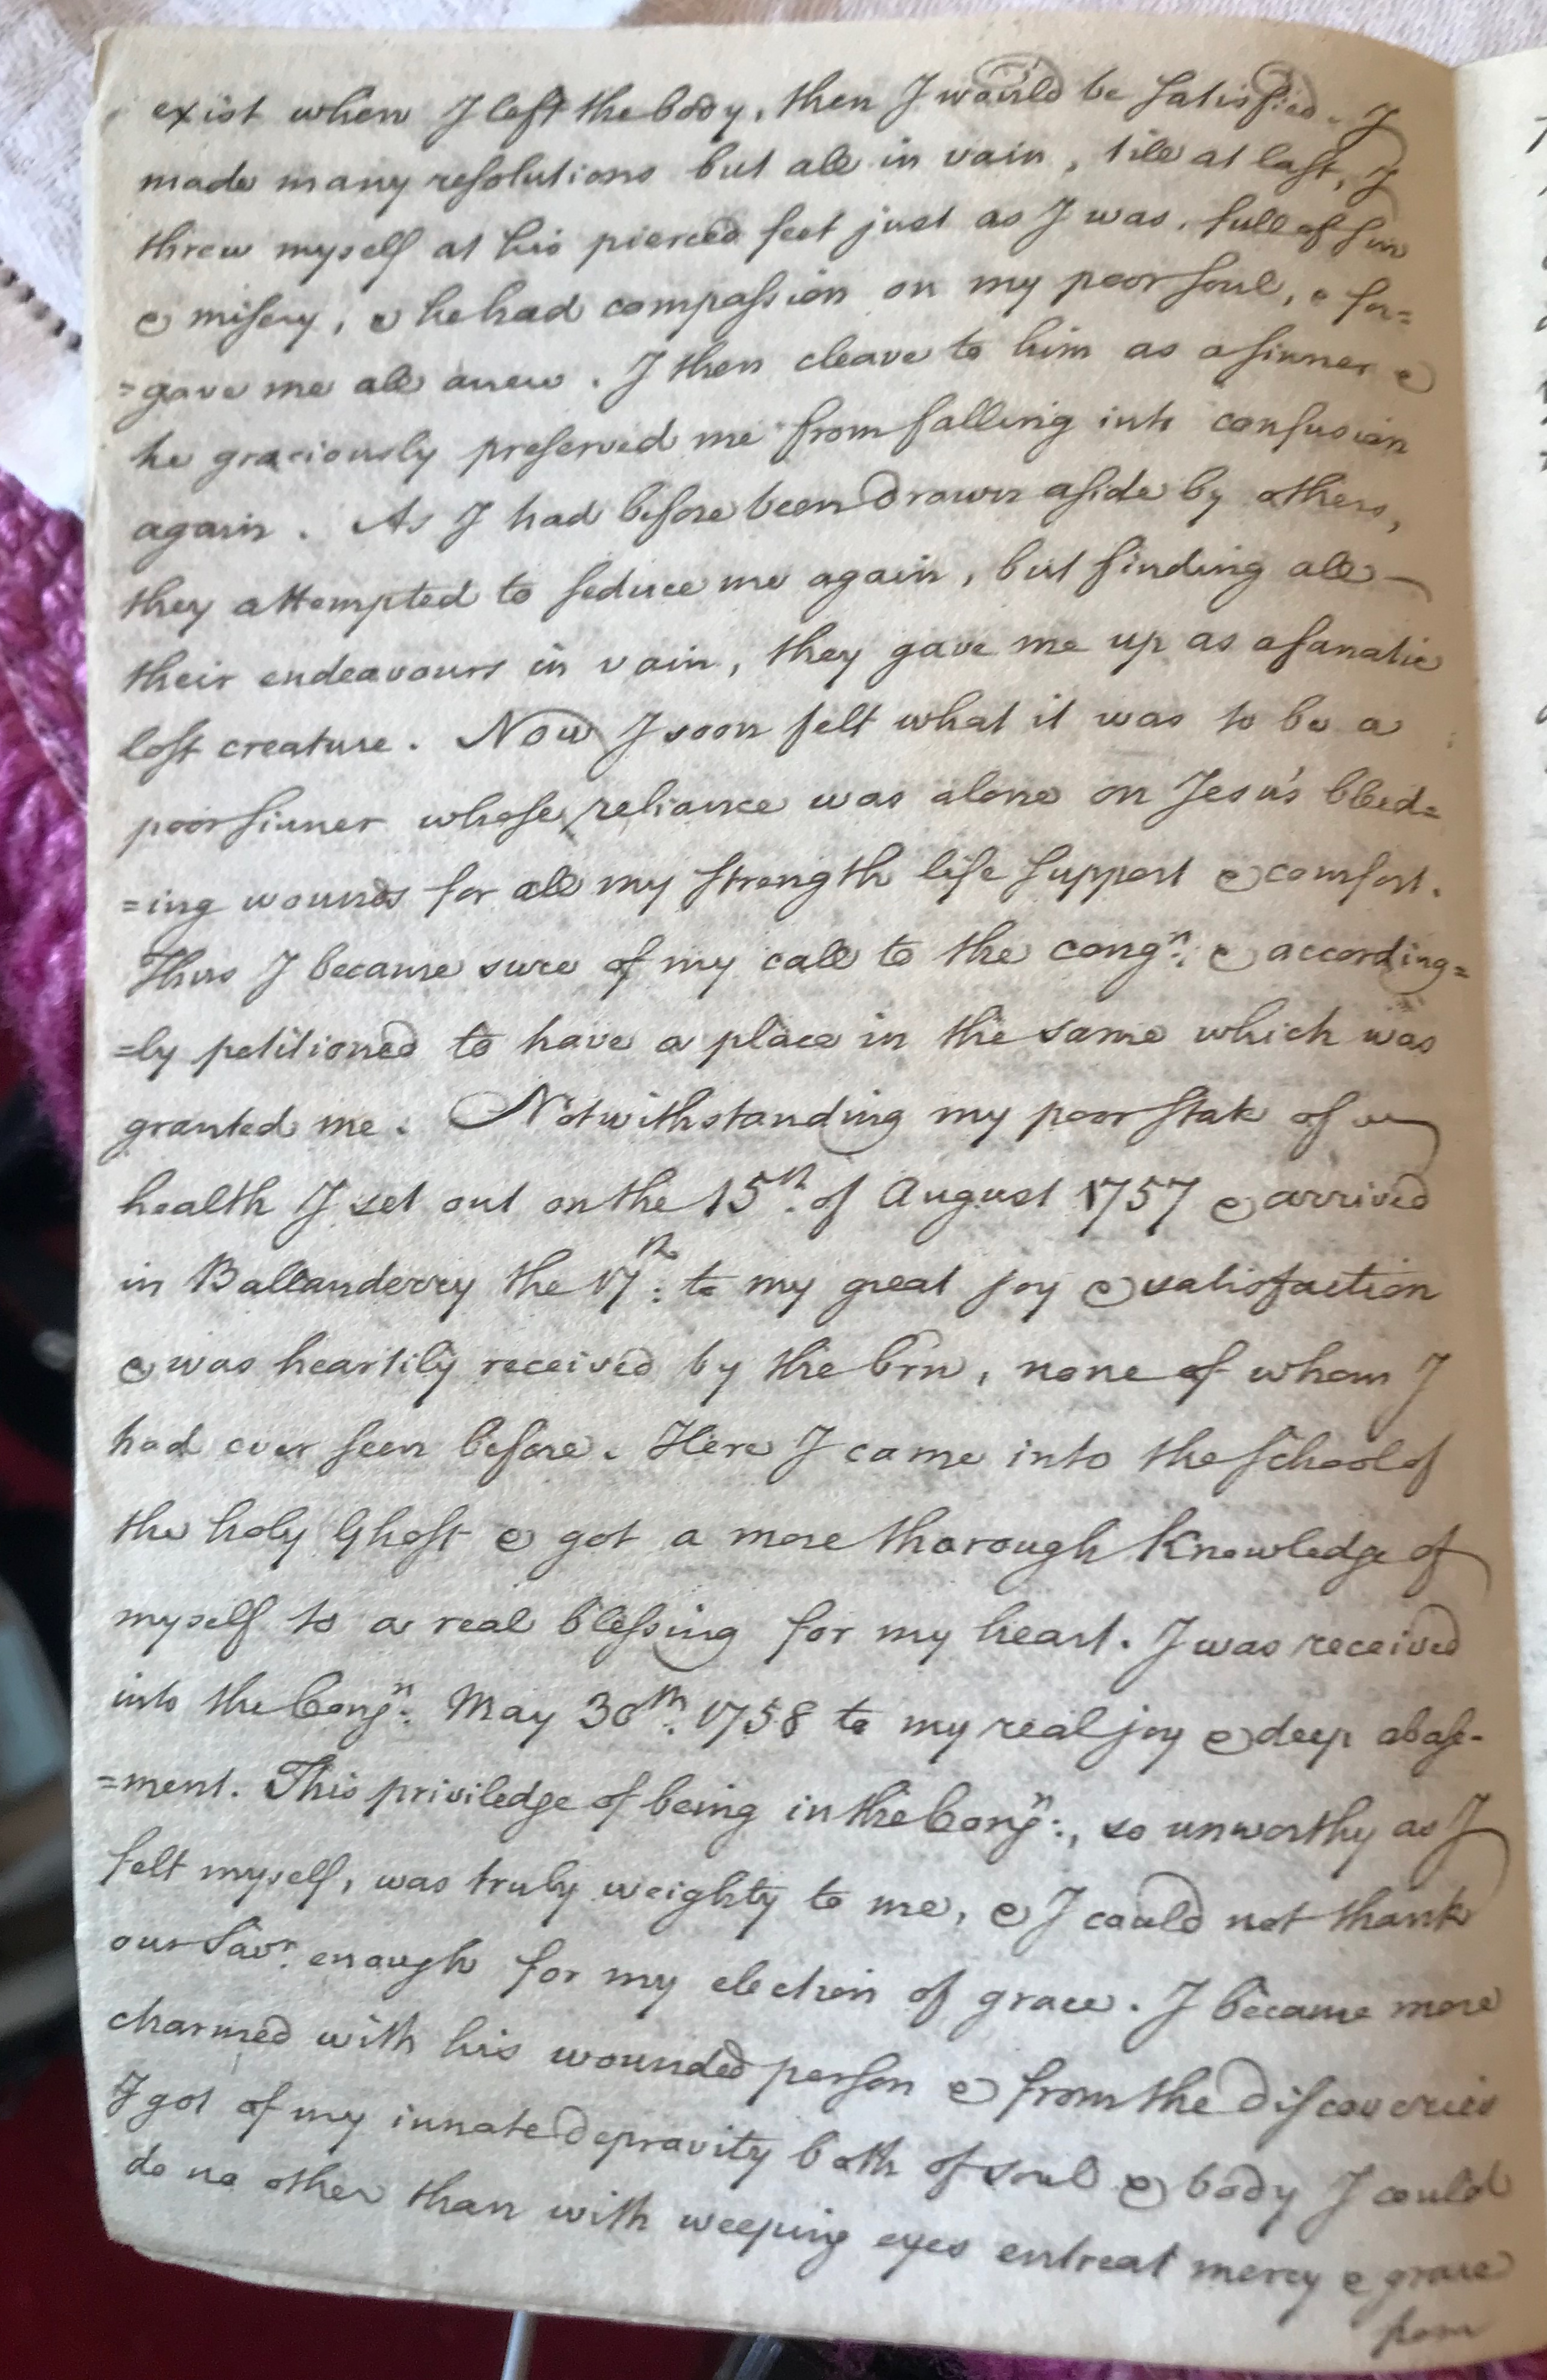 exist when I left the body, then I would be satisfied. I
made many resolutions but all in vain, till at last, I
threw myself at his pierced feet just as I was, full of sin
& misery, & he had compassion on my poor soul, & for=
=gave me all anew. I then cleave to him as a sinner &
he graciously preserved me from falling into confusion
again. As I had before been drawn aside by others,
they attempted to seduce me again, but finding all
their endeavours in vain, they gave me up as a fanatic
lost creature. Now I soon felt what it was to be a
poor sinner whose reliance was alone on Jesu's bleed=
=ing wounds for all my strength life support & comfort.
Thus I became sure of my call to the congn: & according=
=ly petitioned to have a place in the same which was
granted me. Notwithstanding my poor state of
health I set out on the 15th. of August 1757 & arrived
in Ballanderry the 17th: to my great joy & satisfaction
& was heartily received by the brn, none of whom I
had ever seen before. Here I came into the school of
the holy Ghost & got a more thorough Knowledge of
myself to a real blessing for my heart. I was received
into the Congn: May 30th. 1758 to my real joy & deep abase-
=ment. This priviledge of being in the Congn:, so unworthy as I
felt myself, was truly weighty to me, & I could not thank
our Savr. enough for my election of grace. I became more
charmed with his wounded person & from the discoveries
I got of my innate depravity both of soul & body I could
do no other than with weeping eyes entreat mercy & grace
from